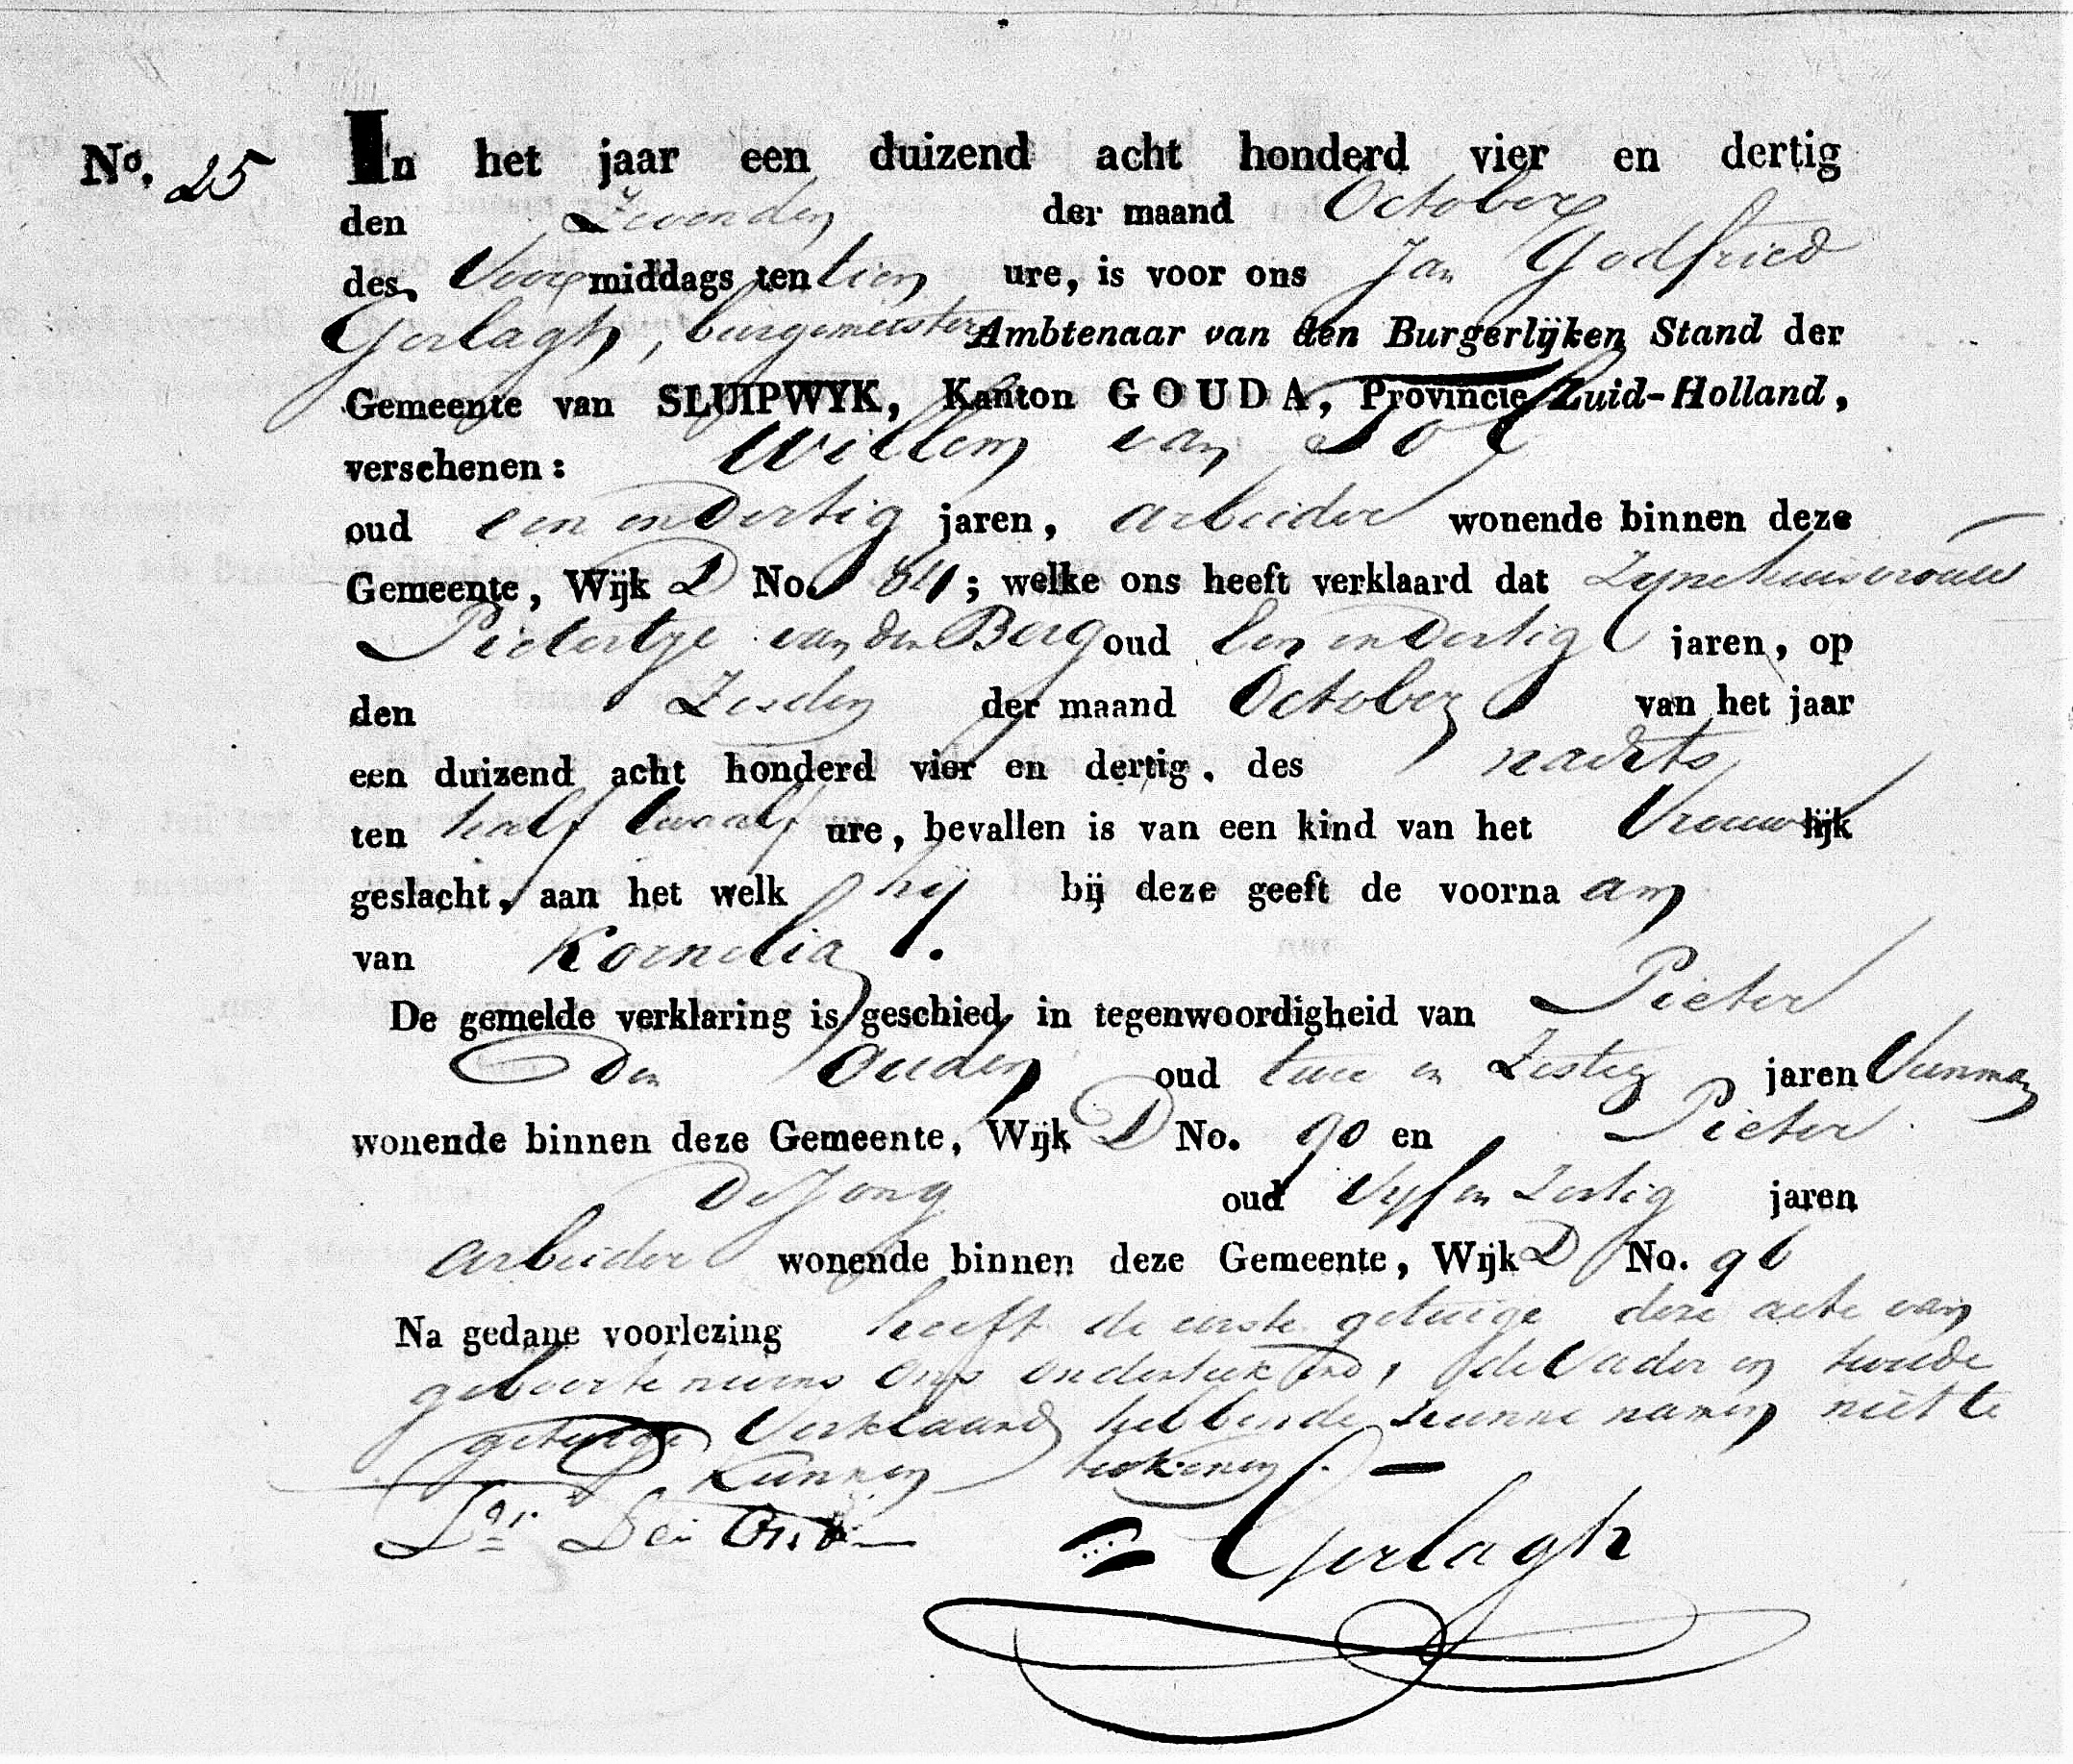 No. 25 In het jaar een duizend acht honderd vier en dertig
den Zevenden der maand October
des Voormiddags ten tien ure, is voor ons Jan Godfried
Gerlagh, burgemeester Ambtenaar van den Burgerlijken Stand der
Gemeente van SLUIPWYK, Kanton GOUDA, Provincie Zuid-Holland,
verschenen: Willem van Tol
oud een en dertig jaren, arbeider wonende binnen deze
Gemeente, Wijk D No. 84; welke ons heeft verklaard dat Zyne huisvrouw
Pietertje van den Berg oud Een en dertig jaren, op
den Zesden der maand October van het jaar
een duizend acht honderd vier en dertig, des nachts
ten half twaalf ure, bevallen is van een kind van het Vrouwlijk
geslacht, aan het welk hij bij deze geeft de voornaam
van Kornelia.
De gemelde verklaring is geschied in tegenwoordigheid van Pieter
Den Ouden oud twee en Zestig jaren Veenman
wonende binnen deze Gemeente, Wijk D No. 90 en Pieter
De Jong oud Vyf en Zestig jaren
arbeider wonende binnen deze Gemeente, Wijk D No. 96
Na gedane voorlezing heeft de eerste getuige deze acte van
geboorte nevens ons onderteekend, de Vader en tweede
getuige Verklaard hebbende hunne namen niet te
kunnen teekenen. —
Gerlagh